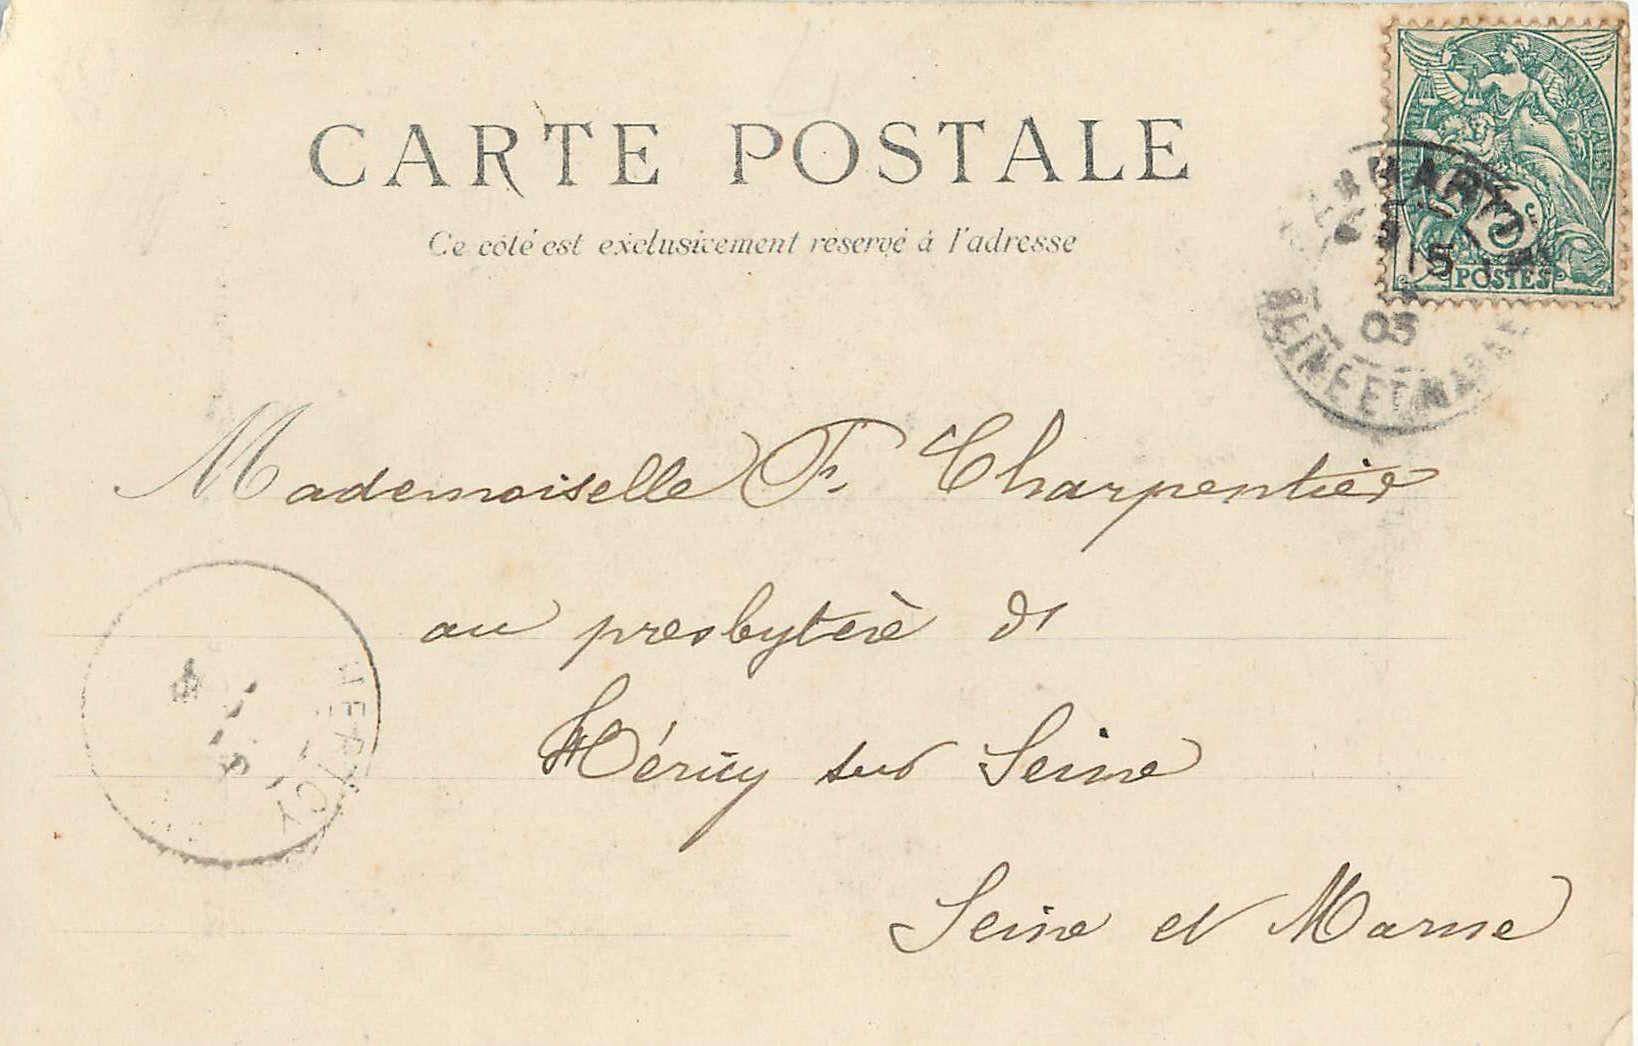 CARTE POSTALE
Ce côté est exclusivement réservé à l'adresse
POSTES
5
03
SEINE ET MARNE
Mademoiselle F. Charpentier
au presbytère de
Héricy sur Seine
Seine et Marne
HERICY